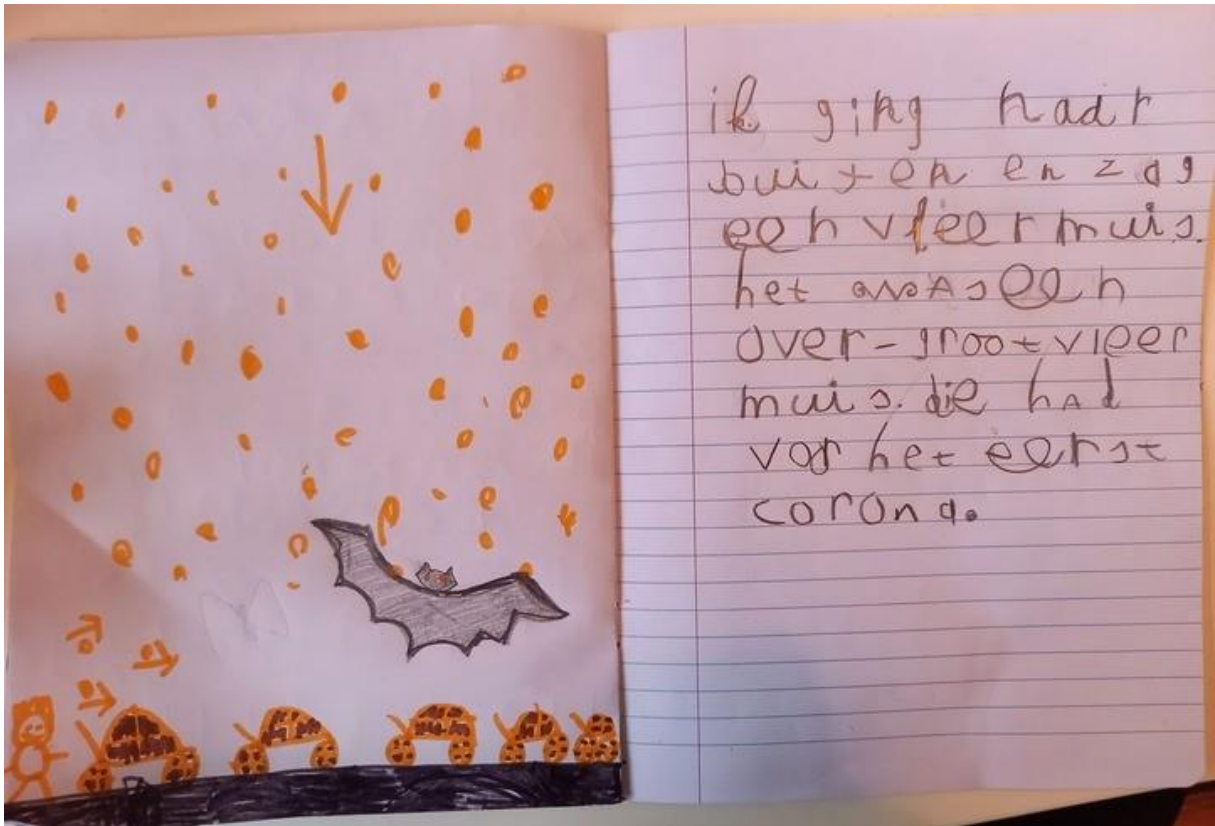 ik ging naar
buiten en zag
een vleermuis.
het was een
over-groot vleer
muis. die had
vor het eerst
corona.